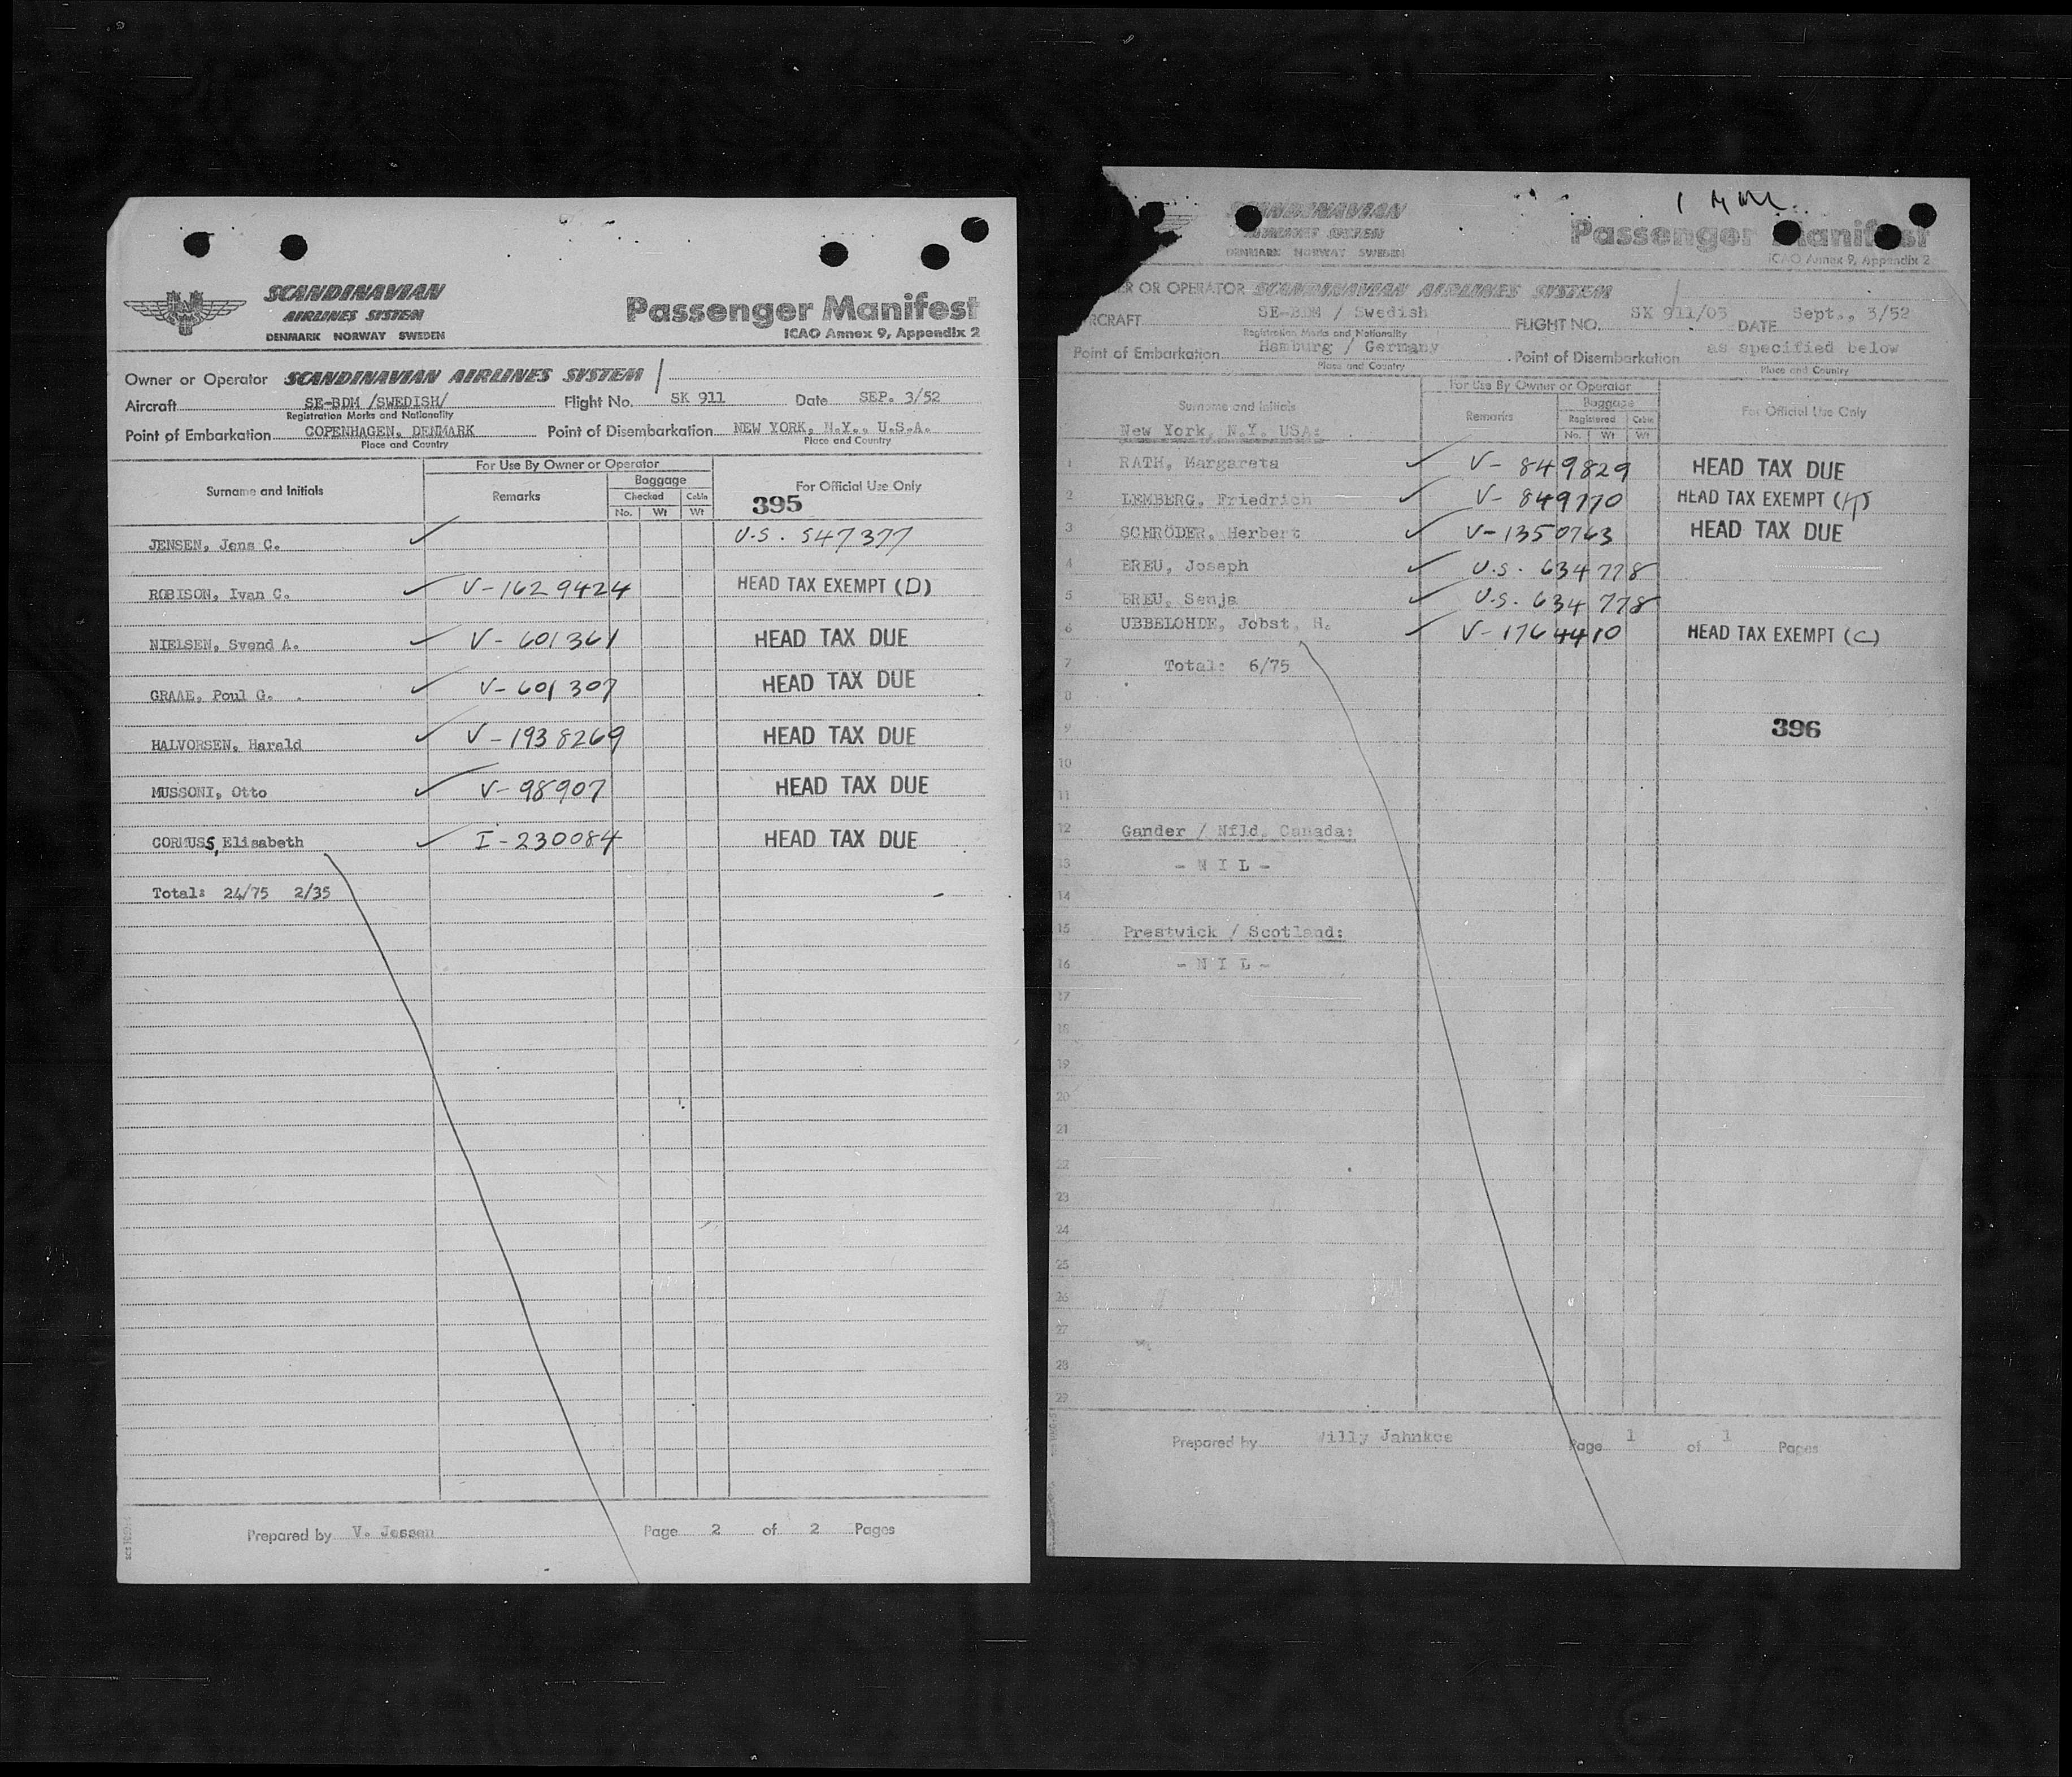 SCANDINAVIAN
AIRLINES SYSTEM
DENMARK NORWAY SWEDEN
Passenger Manifest
ICAO Annex 9, Appendix 2
Owner or Operator SCANDINAVIAN AIRLINES SYSTEM
Aircraft SE-BDM /SWEDISH/ Flight No. SK 911 Date SEP. 3/52
Registration Marks and Nationality
Point of Embarkation COPENHAGEN, DENMARK Point of Disembarkation NEW YORK, N.Y., U.S.A.
Place and Country Place and Country
For Use By Owner or Operator
Surname and Initials Remarks Baggage For Official Use Only
Checked Cabin 395
No. Wt Wt
JENSEN, Jens C. U.S. 547377
ROBISON, Ivan C. V-1629424 HEAD TAX EXEMPT (D)
NIELSEN, Svend A. V-601361 HEAD TAX DUE
GRAAE, Poul G. V-601307 HEAD TAX DUE
HALVORSEN, Harald V-1938269 HEAD TAX DUE
MUSSONI, Otto V-98907 HEAD TAX DUE
CORMUSS, Elisabeth I-230084 HEAD TAX DUE
Total: 24/75 2/35
Prepared by V. Jessen Page 2 of 2 Pages
SCANDINAVIAN
AIRLINES SYSTEM
DENMARK NORWAY SWEDEN
Passenger Manifest
ICAO Annex 9, Appendix 2
ER OR OPERATOR SCANDINAVIAN AIRLINES SYSTEM
RCRAFT SE-BDM / Swedish FLIGHT NO. SK 911/03 DATE Sept., 3/52
Registration Marks and Nationality
Point of Embarkation Hamburg / Germany Point of Disembarkation as specified below
Place and Country Place and Country
For Use By Owner or Operator
Surname and Initials Remarks Baggage For Official Use Only
Registered Cabin
No. Wt Wt
New York, N.Y. USA:
1 RATH, Margareta V-849829 HEAD TAX DUE
2 LEMBERG, Friedrich V-849770 HEAD TAX EXEMPT (A)
3 SCHRÖDER, Herbert V-1350763 HEAD TAX DUE
4 BREU, Joseph U.S. 634778
5 BREU, Senja U.S. 634778
6 UBBELOHDE, Jobst, H. V-1764410 HEAD TAX EXEMPT (C)
7 Total: 6/75
8
9 396
10
11
12 Gander / Nfld. Canada:
13 - N I L -
14
15 Prestwick / Scotland:
16 - N I L -
17
18
19
20
21
22
23
24
25
26
27
28
29
Prepared by Willy Jahnkoe Page 1 of 1 Pages